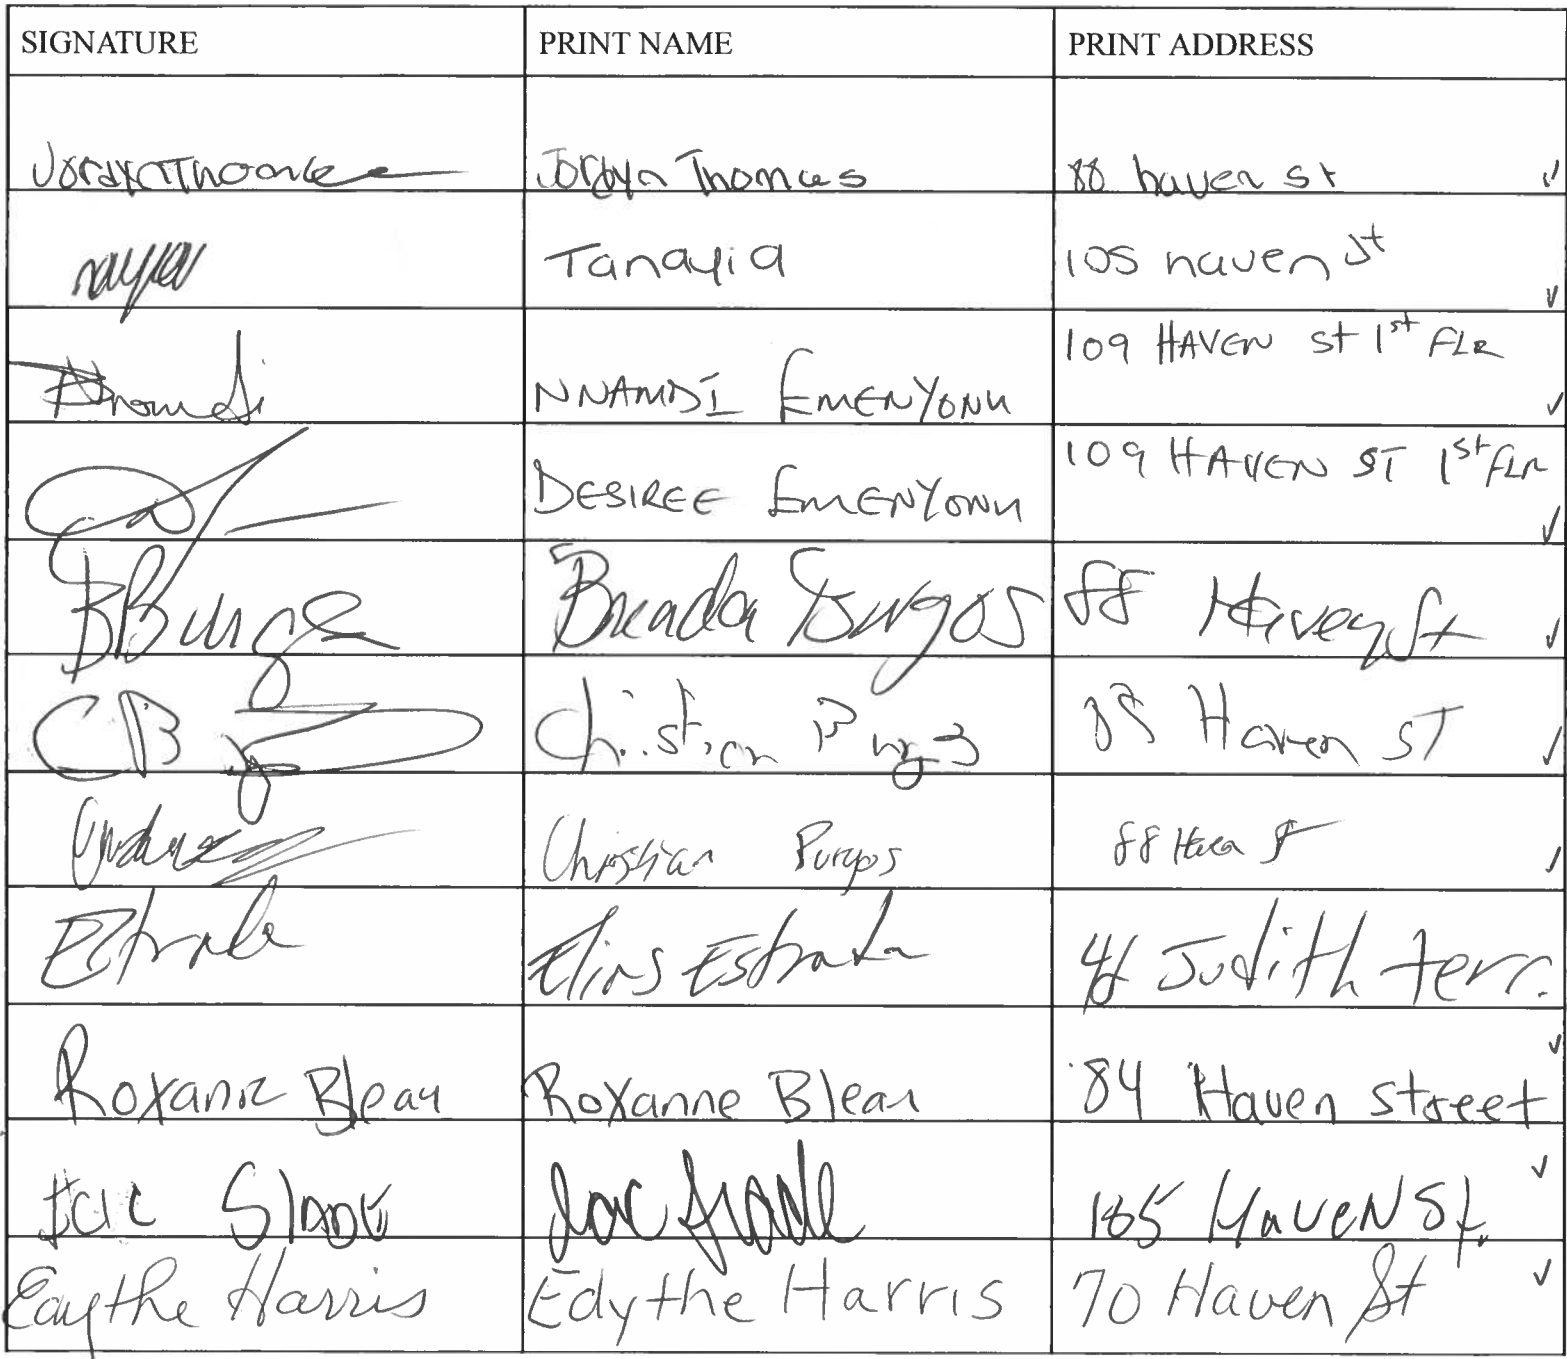 SIGNATURE PRINT NAME PRINT ADDRESS
Jordyn Thomas 88 haven st
Tanayia 105 haven st
Nnamdi NNAMDI EMENYONU 109 HAVEN st 1st FLR
DESIREE EMENYONU 109 HAVEN ST 1st FLR
BBurgos Brenda Burgos 88 Haven St
CB Christian Burgos 88 Haven ST
Christian Burgos 88 Haven St
Estrada Elias Estrada Judith terr.
Roxanne Bleau Roxanne Bleau 84 Haven street
Eric Slade Eric Slade 185 HaveN St.
Edythe Harris Edythe Harris 70 Haven St